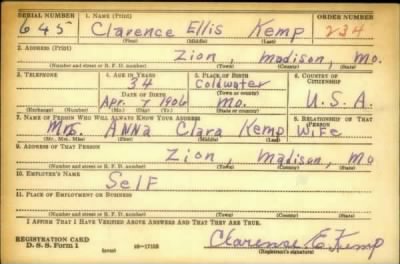 SERIAL NUMBER 1. NAME (Print) ORDER NUMBER
645 Clarence Ellis Kemp 234
(First) (Middle) (Last)
2. ADDRESS (Print)
Zion, Madison, Mo.
(Number and street or R. F. D. number) (Town) (County) (State)
3. TELEPHONE 4. AGE IN YEARS 5. PLACE OF BIRTH 6. COUNTRY OF CITIZENSHIP
34 Coldwater
DATE OF BIRTH (Town or county)
Apr. 7 1906 Mo. U.S.A.
(Exchange) (Number) (Mo.) (Day) (Yr.) (State or country)
7. NAME OF PERSON WHO WILL ALWAYS KNOW YOUR ADDRESS 8. RELATIONSHIP OF THAT PERSON
Mrs. Anna Clara Kemp Wife
(Mr., Mrs., Miss) (First) (Middle) (Last)
9. ADDRESS OF THAT PERSON
Zion, Madison, Mo
(Number and street or R. F. D. number) (Town) (County) (State)
10. EMPLOYER'S NAME
Self
11. PLACE OF EMPLOYMENT OR BUSINESS
(Number and street or R. F. D. number) (Town) (County) (State)
I AFFIRM THAT I HAVE VERIFIED ABOVE ANSWERS AND THAT THEY ARE TRUE.
REGISTRATION CARD
D. S. S. Form 1 (over) Clarence E. Kemp
(Registrant's signature)